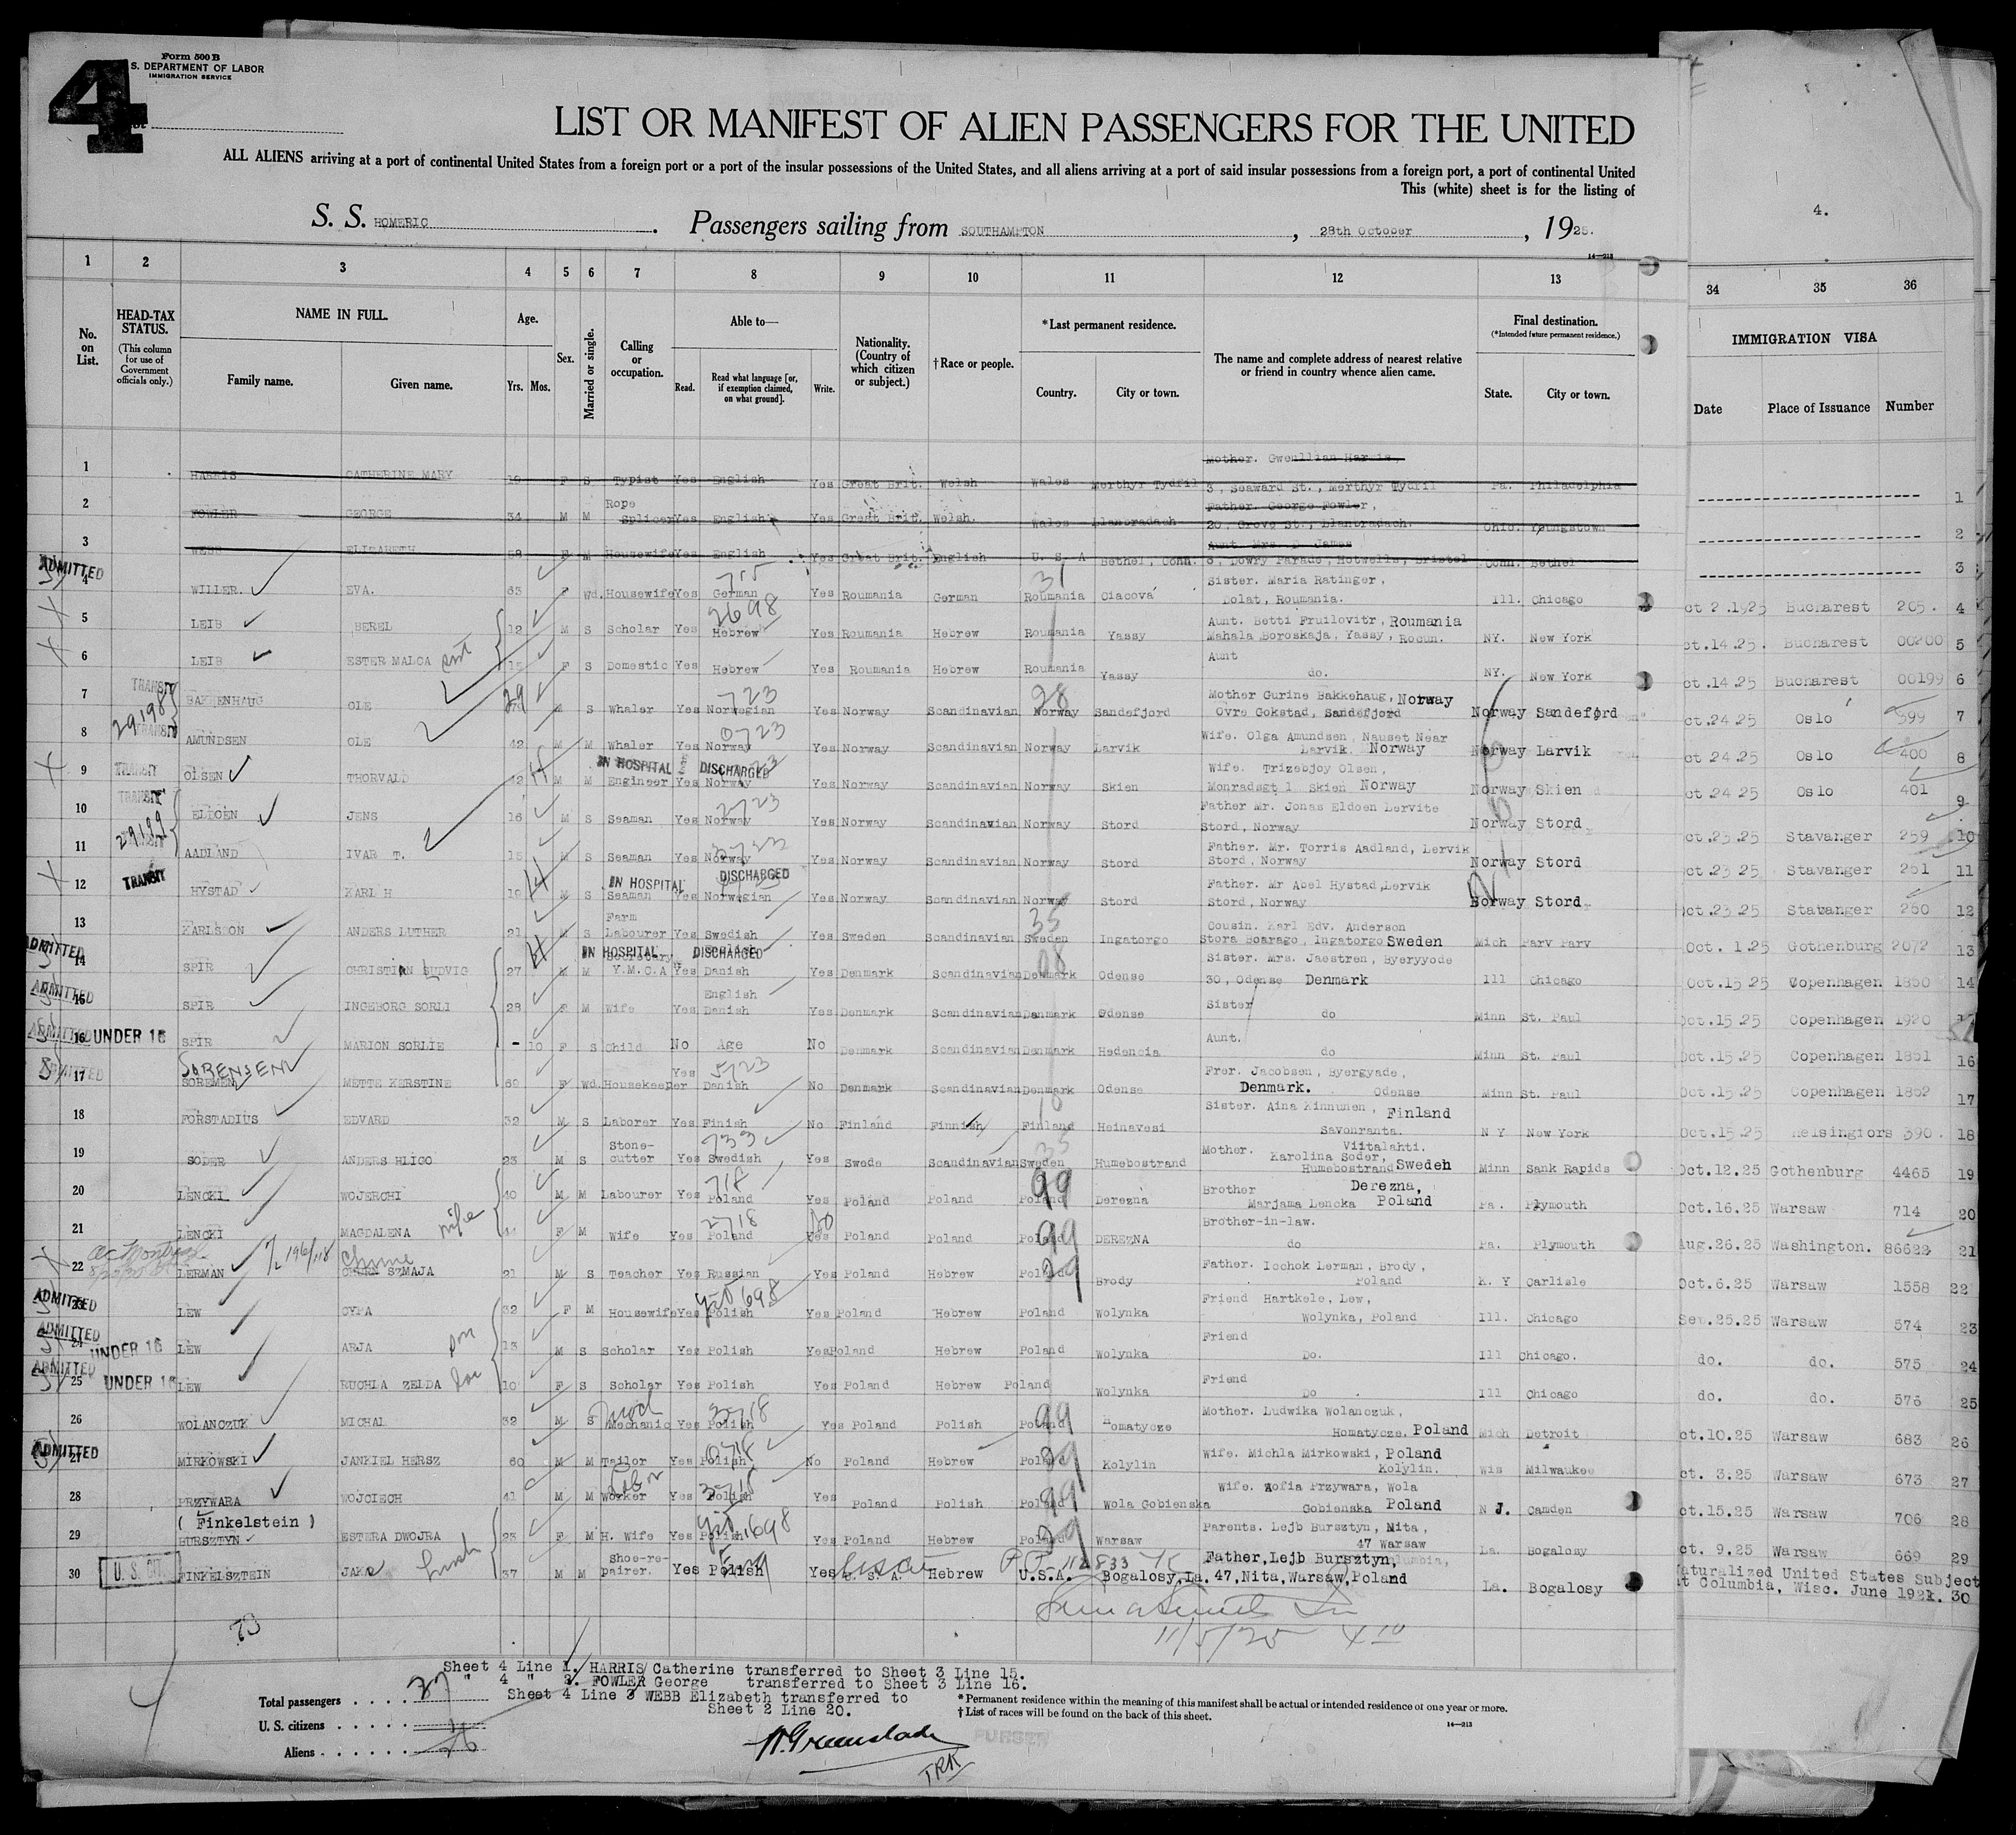 4
Form 500 B
S. DEPARTMENT OF LABOR
IMMIGRATION SERVICE
LIST OR MANIFEST OF ALIEN PASSENGERS FOR THE UNITED
ALL ALIENS arriving at a port of continental United States from a foreign port or a port of the insular possessions of the United States, and all aliens arriving at a port of said insular possessions from a foreign port, a port of continental United
This (white) sheet is for the listing of
4.
S. S. HOMERIC. Passengers sailing from SOUTHAMPTON, 28th October, 1925.
14—213
1 2 3 4 5 6 7 8 9 10 11 12 13 34 35 36
No. on List. HEAD-TAX STATUS. (This column for use of Government officials only.) NAME IN FULL. Family name. Given name. Age. Yrs. Mos. Sex. Married or single. Calling or occupation. Able to— Read. Read what language [or, if exemption claimed, on what ground]. Write. Nationality. (Country of which citizen or subject.) †Race or people. *Last permanent residence. Country. City or town. The name and complete address of nearest relative or friend in country whence alien came. Final destination. (*Intended future permanent residence.) State. City or town. IMMIGRATION VISA Date Place of Issuance Number
1 HARRIS CATHERINE MARY 19 F S Typist Yes English Yes Great Brit. Welsh Wales Merthyr Tydfil Mother. Gwenllian Harris, 3, Seaward St., Merthyr Tydfil Pa. Philadelphia 1
2 FOWLER GEORGE 34 M M Rope Splicer Yes English Yes Great Brit. Welsh. Wales Llanbradach Father. George Fowler, 20, Grove St., Llanbradach. Ohio. Youngstown 2
3 WEBB ELIZABETH 58 F M Housewife Yes English Yes Great Brit. English U. S. A Bethel, Conn. Aunt Mrs. D. James 6, Dowry Parade, Hotwells, Bristol Conn. Bethel 3
ADMITTED 4 WILLER. EVA. 63 F Wd. Housewife Yes German 715 Yes Roumania German Roumania 31 Ciacova Sister. Maria Ratinger, Dolat, Roumania. Ill. Chicago ct 2.1925 Bucharest 205. 4
5 LEIB BEREL 12 M S Scholar Yes Hebrew 2698 Yes Roumania Hebrew Roumania Yassy Aunt. Betti Fruilovitr, Roumania Mahala Boroskaja, Yassy, Rocun. NY. New York ct.14.25. Bucharest 00200 5
6 LEIB ESTER MALCA 15 F S Domestic Yes Hebrew Yes Roumania Hebrew Roumania Yassy Aunt do. NY. New York ct.14.25 Bucharest 00199 6
7 TRANSIT BAKKENHAUG OLE 29 M S Whaler Yes Norwegian 723 Yes Norway Scandinavian Norway 28 Sandefjord Mother Gurine Bakkehaug, Norway Ovre Gokstad, Sandefjord Norway Sandefjord ct.24.25 Oslo 399 7
8 29198 TRANSIT AMUNDSEN OLE 42 M M Whaler Yes Norway 723 Yes Norway Scandinavian Norway Larvik Wife. Olga Amundsen, Nauset Near Larvik. Norway Norway Larvik ct.24.25 Oslo 400 8
9 TRANSIT OLSEN THORVALD 42 M M Engineer IN HOSPITAL DISCHARGED Yes Norway Yes Norway Scandinavian Norway Skien Wife. Trizebjoy Olsen, Monradsgt 1 Skien Norway Norway Skien ct 24 25 Oslo 401 9
10 TRANSIT ELDOEN JENS 16 M S Seaman Yes Norway 2723 Yes Norway Scandinavian Norway Stord Father Mr. Jonas Eldoen Lervite Stord, Norway Norway Stord ct.23.25 Stavanger 259 10
11 29199 AADLAND IVAR T. 15 M S Seaman Yes Norway Yes Norway Scandinavian Norway Stord Father. Mr. Torris Aadland, Lervik Stord, Norway Norway Stord ct.23 25 Stavanger 261 11
12 TRANSIT HYSTAD KARL H 19 M S Seaman IN HOSPITAL DISCHARGED Yes Norwegian Yes Norway Scandinavian Norway Stord Father. Mr Abel Hystad, Lervik Stord, Norway Norway Stord. Oct.23.25 Stavanger 260 12
13 KARLSSON ANDERS LUTHER 21 M S Farm Labourer Yes Swedish Yes Sweden Scandinavian Sweden 35 Ingatorgo Cousin. Karl Edv. Anderson Stora Boarago, Ingatorgo Sweden Mich Parv Parv Oct. 1.25 Gothenburg 2072 13
ADMITTED 14 SPIR CHRISTIAN LUDVIG 27 M M Secretary Y.M.C.A IN HOSPITAL DISCHARGED Yes English Danish Yes Denmark Scandinavian Denmark 08 Odense Sister. Mrs. Jaestren, Byeryyode 30, Odense Denmark Ill Chicago Oct.15 25 Copenhagen 1850 14
ADMITTED 15 SPIR INGEBORG SORLI 28 F M Wife Yes English Danish Yes Denmark Scandinavian Denmark Odense Sister do Minn St. Paul Oct.15.25 Copenhagen 1920
ADMITTED 16 UNDER 16 SPIR MARION SORLIE - 10 F S Child No Age No Denmark Scandinavian Denmark Hedencia Aunt. do Minn St. Paul Oct.15.25 Copenhagen 1851 16
ADMITTED 17 SORENSEN SOREMEN METTE KERSTINE 69 F Wd. Housekeeper Yes Danish 5723 No Denmark Scandinavian Denmark Odense Frer. Jacobsen, Byergyade, Denmark. Odense Minn St. Paul Oct.15.25 Copenhagen 1852 17
18 FORSTADIUS EDVARD 32 M S Laborer Yes Finish No Finland Finnish Finland Heinavesi Sister. Aina Kinnunen, Finland Savonranta. N Y New York Oct.15.25 Helsingfors 390. 18
19 SODER ANDERS HLIGO 23 M S Stone-cutter Yes Swedish 733 Yes Swede Scandinavian Sweden 35 Humebostrand Mother. Viitalahti. Karolina Soder, Humebostrand Sweden Minn Sank Rapids Oct.12.25 Gothenburg 4465 19
20 LENCKI WOJERCHI 40 M M Labourer Yes Poland 718 Yes Poland Poland Poland 99 Derezna Brother Derezna, Marjama Lencka Poland Pa. Plymouth Oct.16.25 Warsaw 714 20
21 LENCKI MAGDALENA wife 44 F M Wife Yes Poland 2718 Yes No Poland Poland Poland 99 DEREZNA Brother-in-law. do Pa. Plymouth Aug.26.25 Washington. 86622 21
22 LERMAN SZMAJA 21 M S Teacher Yes Russian Yes Poland Hebrew Poland 29 Brody Father. Icchok Lerman, Brody, Poland K. Y Carlisle Oct.6.25 Warsaw 1558 22
ADMITTED 23 LEW CYPA 32 F M Housewife Yes Polish 698 Yes Poland Hebrew Poland Wolynka Friend Hartkele, Lew, Wolynka, Poland Ill. Chicago Sep.25.25 Warsaw 574 23
ADMITTED 24 UNDER 16 LEW ARJA son 13 M S Scholar Yes Polish Yes Poland Hebrew Poland Wolynka Friend Do. Ill Chicago. do. do. 575 24
ADMITTED 25 UNDER 16 LEW RUCHLA ZELDA 10 F S Scholar Yes Polish Yes Poland Hebrew Poland Wolynka Friend Do. Ill Chicago do. do. 576 25
26 WOLANCZUK MICHAL 32 M S Mechanic Yes Polish 718 Yes Poland Polish Poland 99 Homatycze Mother. Ludwika Wolanczuk, Homatycze. Poland Mich Detroit ct.10.25 Warsaw 683 26
ADMITTED 27 MIRKOWSKI JANKIEL HERSZ 60 M M Tailor Yes Polish No Poland Hebrew Poland 29 Kolylin Wife. Michla Mirkowski, Poland Kolylin. Wis Milwaukee ct. 3.25 Warsaw 673 27
28 PRZYWARA WOJCIECH 41 M M Labor Worker Yes Polish Yes Poland Polish Poland 99 Wola Gobienska Wife. Zofia Przywara, Wola Gobienska Poland N J. Camden ct.15.25 Warsaw 706 28
29 ( Finkelstein ) BURSZTYN ESTERA DWOJRA 23 F M H. Wife Yes Polish 698 Yes Poland Hebrew Poland 29 Warsaw Parents. Lejb Bursztyn, Nita, 47 Warsaw La. Bogalosy ct. 9.25 Warsaw 669 29
30 U. S. CIT. FINKELSZTEIN JAKO 37 M M Shoe-re-pairer. Yes Polish Eng Yes U. S. A. Hebrew U.S.A. Bogalosy, La. Father, Lejb Bursztyn, 47, Nita, Warsaw, Poland La. Bogalosy Naturalized United States Subject at Columbia, Wisc. June 1921. 30
112833
11/5/25
73
Sheet 4 Line 1. HARRIS Catherine transferred to Sheet 3 Line 15.
" 4 " 2. FOWLER George transferred to Sheet 3 Line 16.
Sheet 4 Line 3 WEBB Elizabeth transferred to
Sheet 2 Line 20.
Total passengers . . . . 27
U. S. citizens . . . . . 1
Aliens . . . . . . 26
* Permanent residence within the meaning of this manifest shall be actual or intended residence of one year or more.
† List of races will be found on the back of this sheet.
14—213
PURSER
TRK